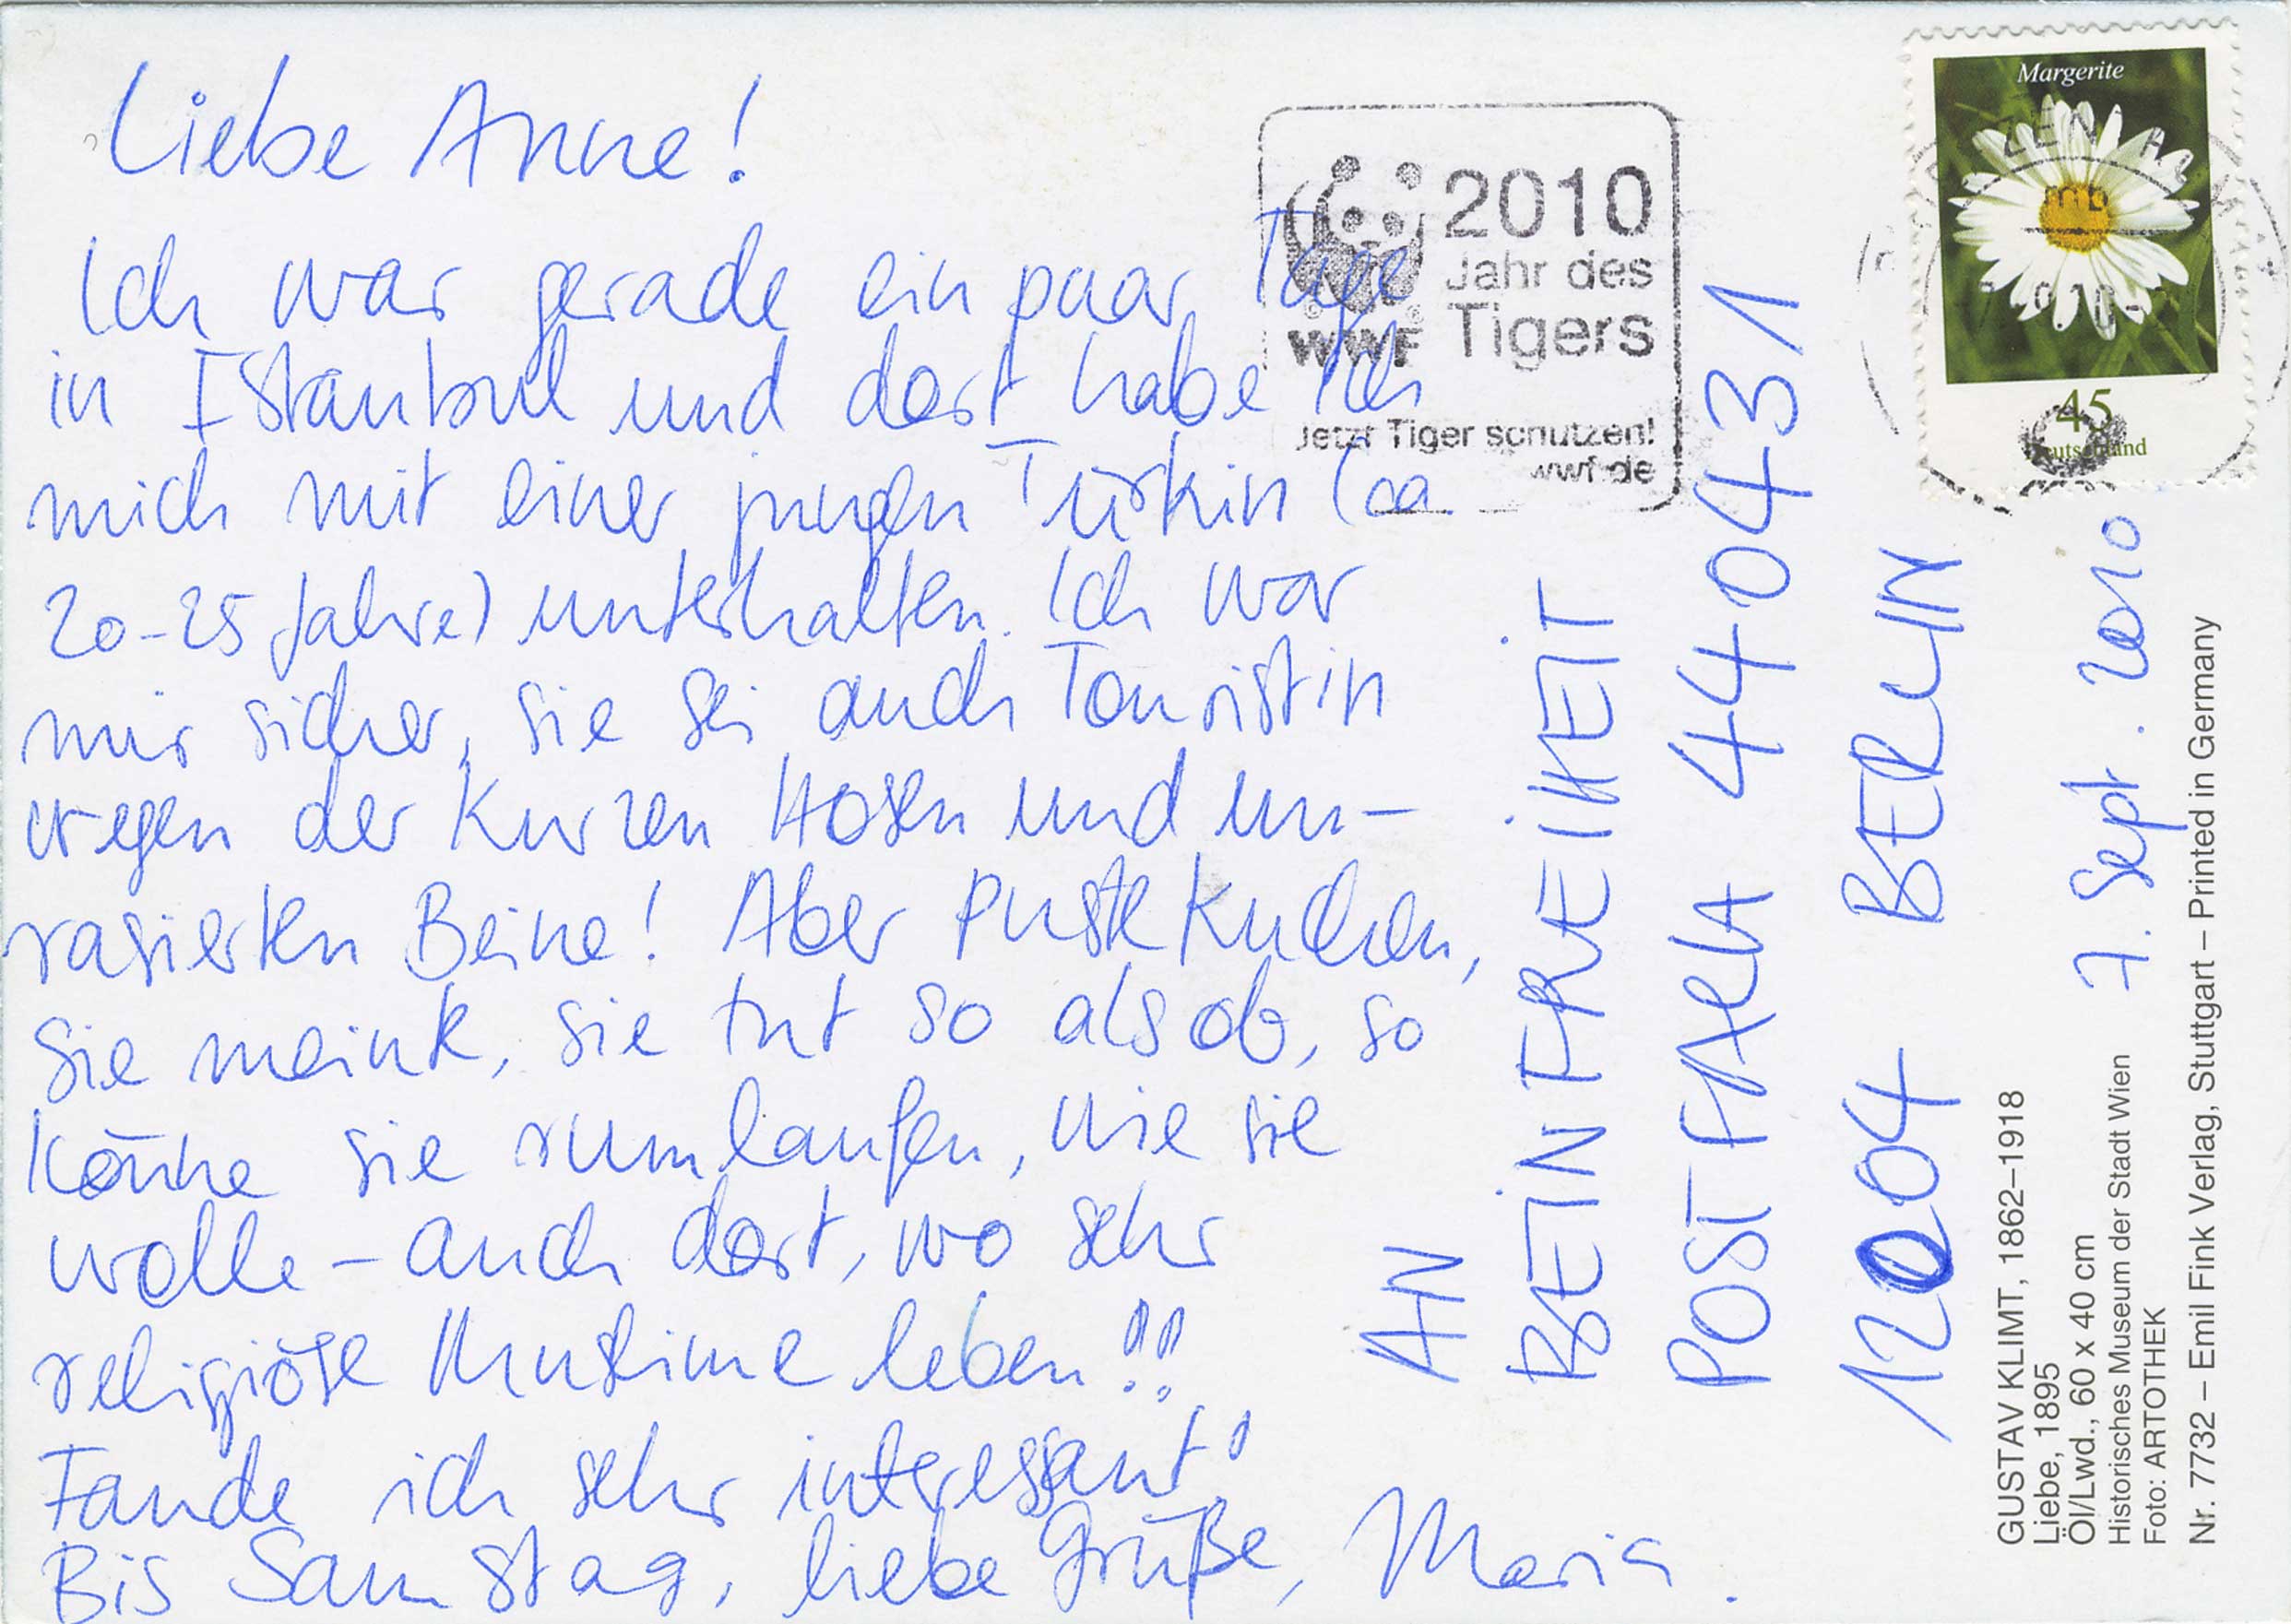 Liebe Anne!
Ich war gerade ein paar Tage
in Istanbul und dort habe ich
mich mit einer jungen Türkin (ca.
20-25 Jahre) unterhalten. Ich war
mir sicher, sie sei auch Touristin
wegen der kurzen Hosen und un-
rasierten Beine! Aber Pustekuchen,
sie meinte, sie tut so als ob, so
könne sie rumlaufen, wie sie
wolle - auch dort, wo sehr
religiöse Muslime leben!!
Fande ich sehr interessant!
Bis Samstag, liebe Grüße, Maria.
AN
BEINFREIHEIT
POSTFACH 440431
12004 BERLIN
7. Sept. 2010
2010
Jahr des
Tigers
WWF
Jetzt Tiger schützen!
wwf.de
Margerite
45
Deutschland
GUSTAV KLIMT, 1862–1918
Liebe, 1895
Öl/Lwd., 60 x 40 cm
Historisches Museum der Stadt Wien
Foto: ARTOTHEK
Nr. 7732 – Emil Fink Verlag, Stuttgart – Printed in Germany